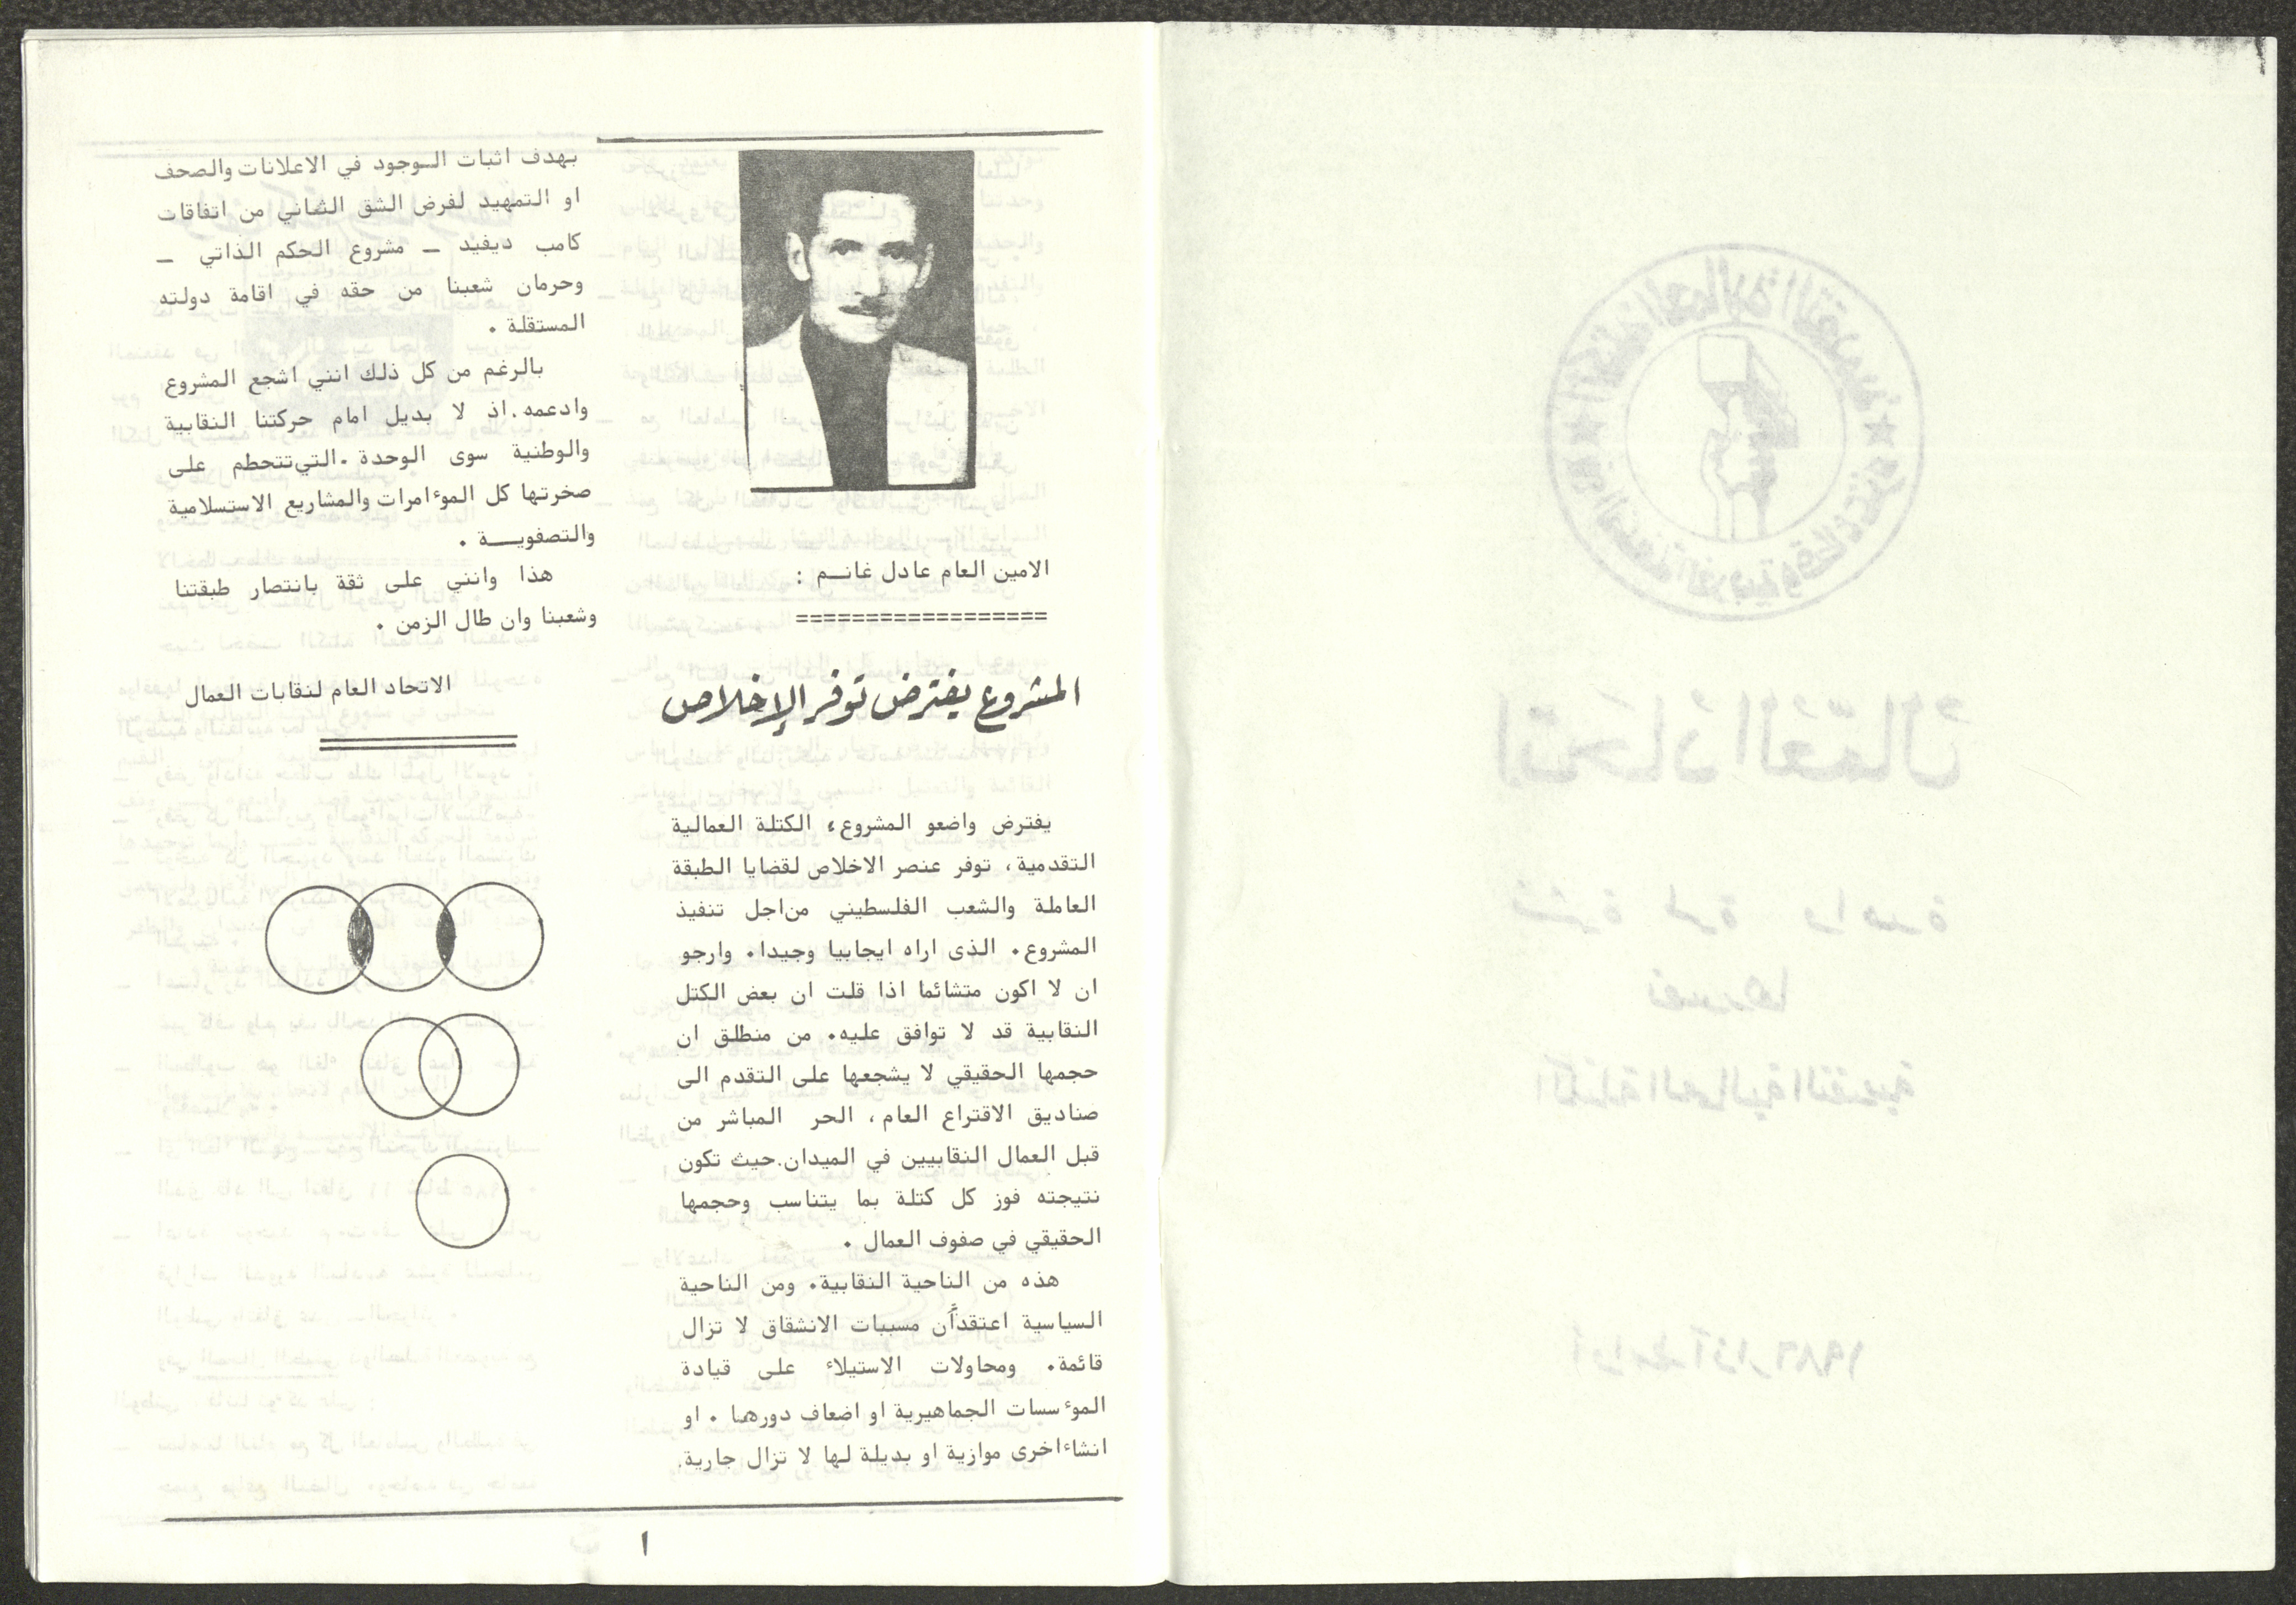 الامين العام عادل غانــم :
==================
المشروع يفترض توفر الإخلاص
يفترض واضعو المشروع، الكتلة العمالية
التقدمية، توفر عنصر الاخلاص لقضايا الطبقة
العاملة والشعب الفلسطيني من اجل تنفيذ
المشروع. الذى اراه ايجابيا وجيدا. وارجو
ان لا اكون متشائما اذا قلت ان بعض الكتل
النقابية قد لا توافق عليه. من منطلق ان
حجمها الحقيقي لا يشجعها على التقدم الى
صناديق الاقتراع العام، الحر المباشر من
قبل العمال النقابيين في الميدان. حيث تكون
نتيجته فوز كل كتلة بما يتناسب وحجمها
الحقيقي في صفوف العمال .
هذه من الناحية النقابية. ومن الناحية
السياسية اعتقد أن مسببات الانشقاق لا تزال
قائمة. ومحاولات الاستيلاء على قيادة
الموءسسات الجماهيرية او اضعاف دورهما . او
انشاء اخرى موازية او بديلة لها لا تزال جارية.
بهدف اثبات الــوجود في الاعلانات والصحف
او التمهيد لفرض الشق الثاني من اتفاقات
كامب ديفيد – مشروع الحكم الذاتي –
وحرمان شعبنا من حقه في اقامة دولته
المستقلة .
بالرغم من كل ذلك انني اشجع المشروع
وادعمه. اذ لا بديل امام حركتنا النقابية
والوطنية سوى الوحدة. التي تتحطم على
صخرتها كل الموءامرات والمشاريع الاستسلامية
والتصفويــــة .
هذا وانني على ثقة بانتصار طبقتنا
وشعبنا وان طال الزمن .
الاتحاد العام لنقابات العمال
١
اتحاد العمال
نشرة لمرة واحدة
تصدرها
الكتلة العمالية التقدمية
أواسط آذار ١٩٨٦